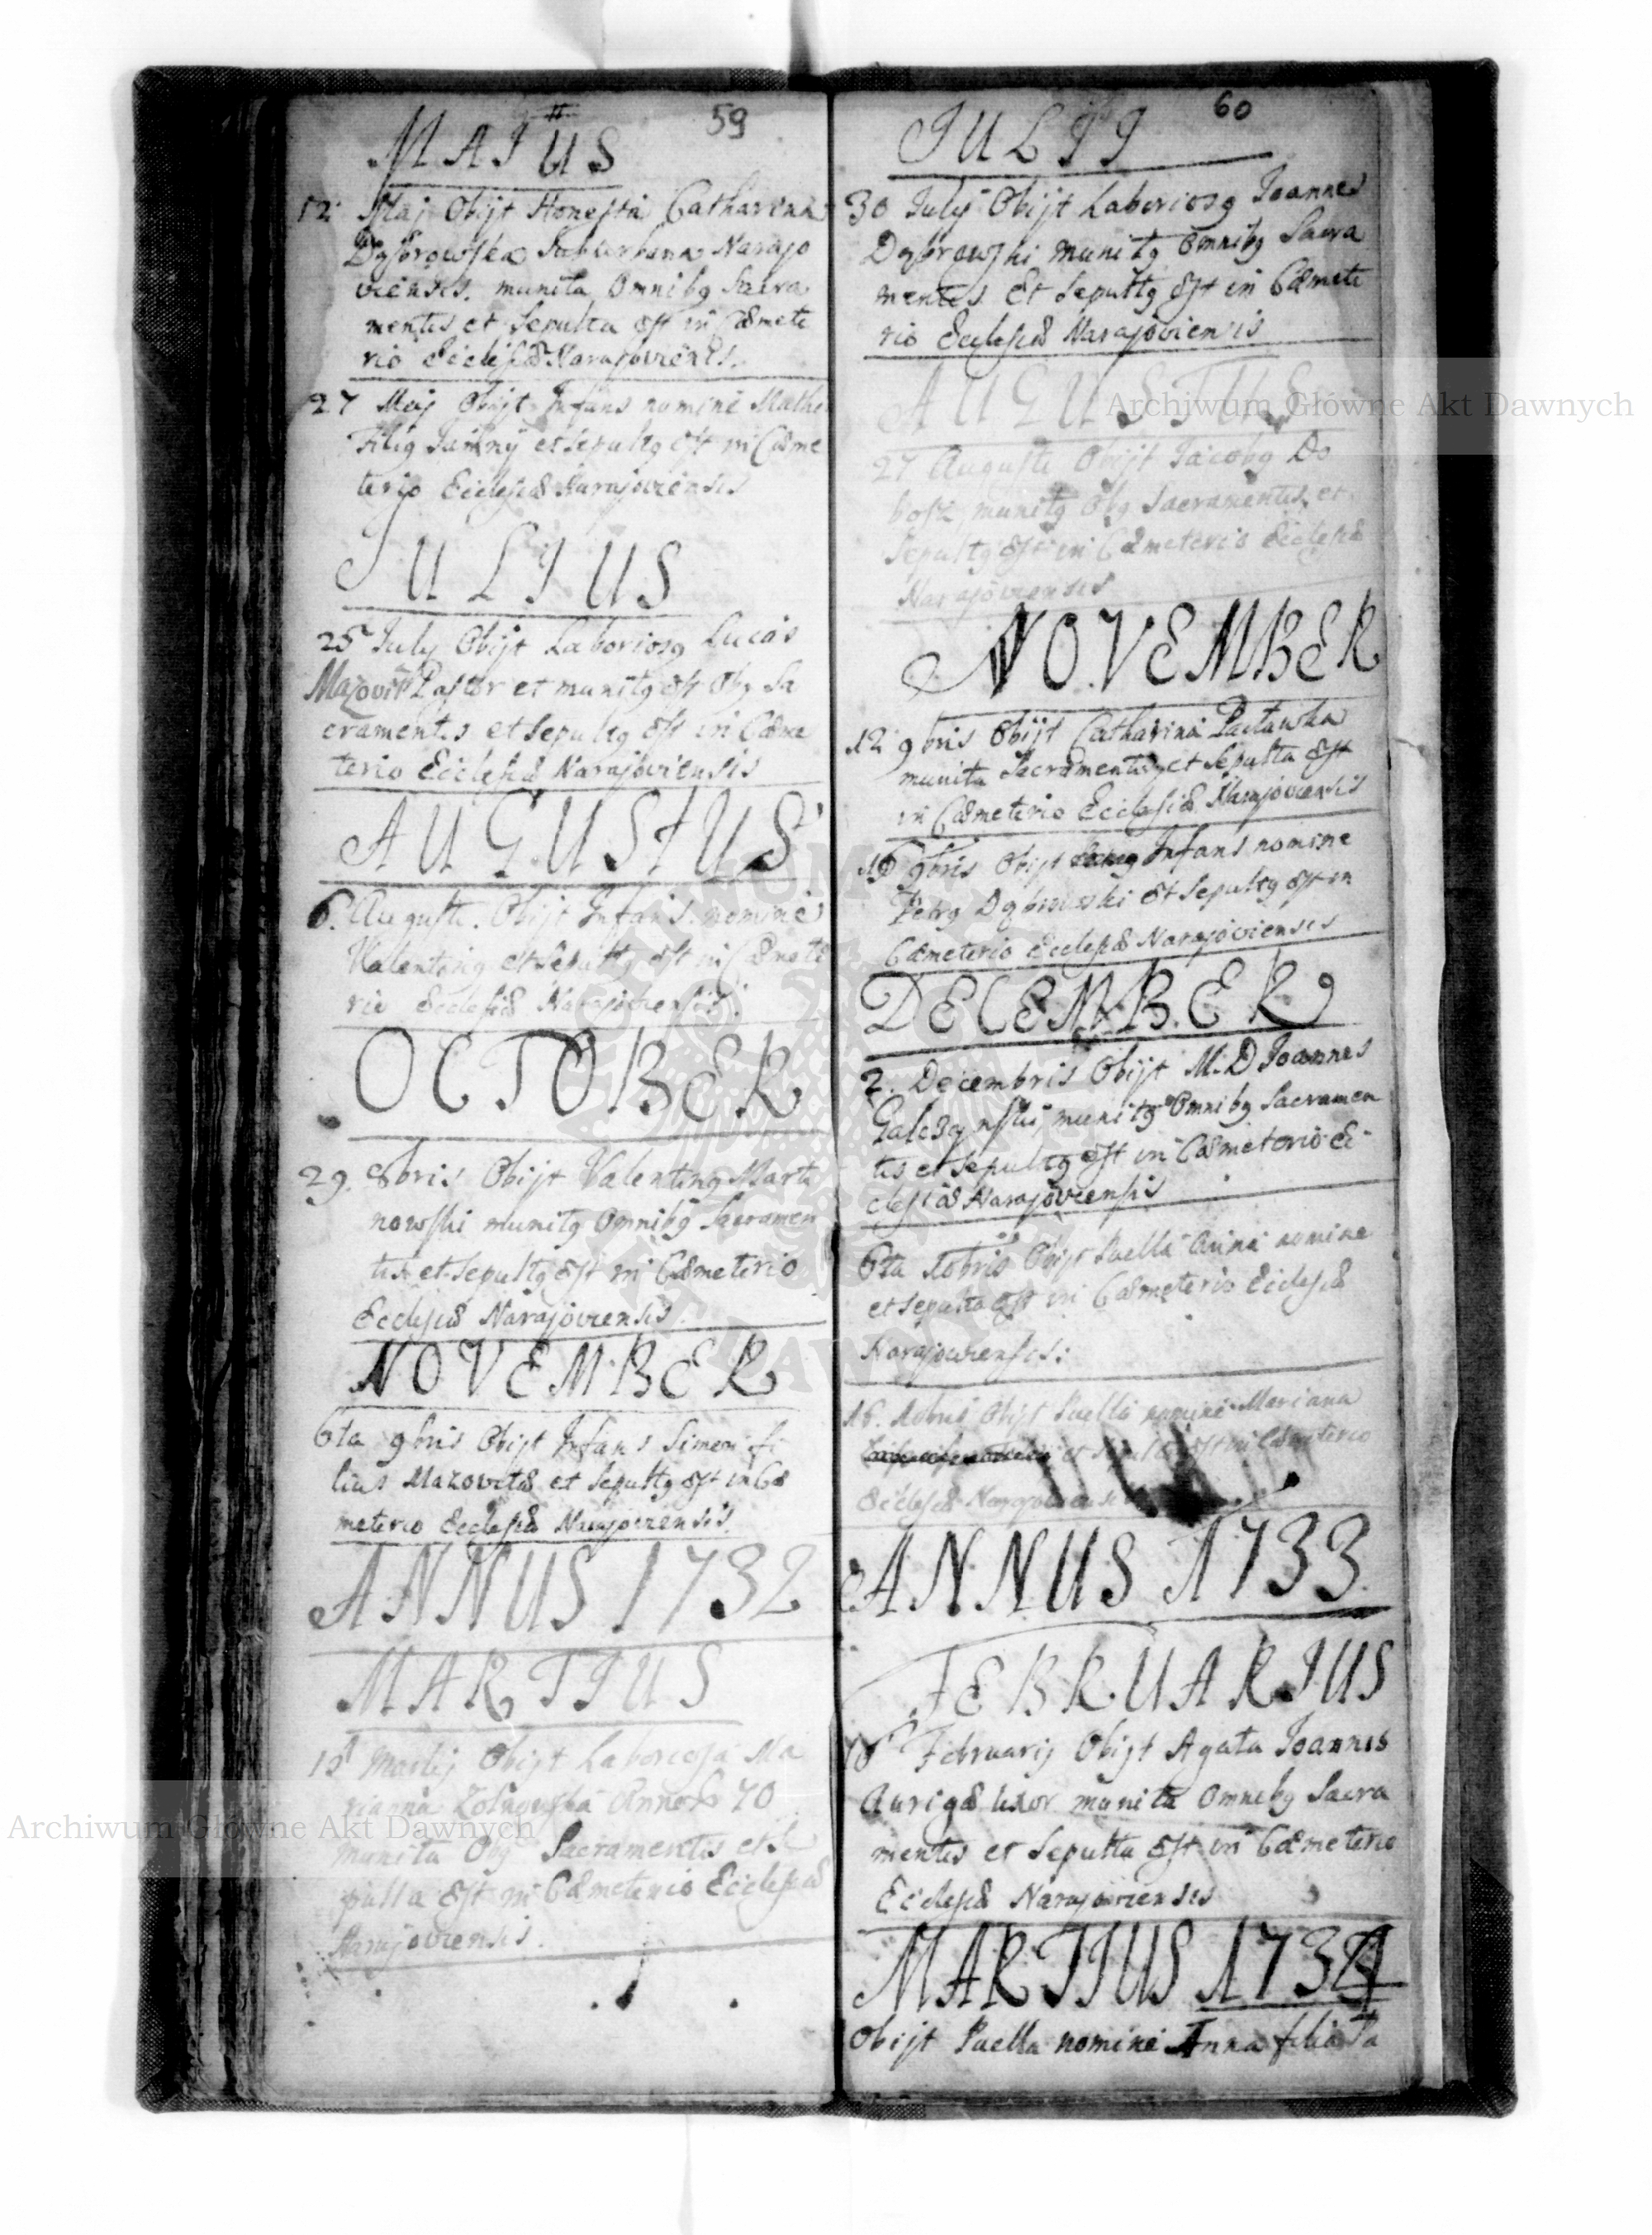 59
MAIUS
12 Maj Obijt Honesta Catharina
Dąbrowska Suburbana Narajo
viensis. munita Omnibq Sacra
mentis et Sepulta est in Cæmete
rio Ecclesiæ Narajoviensis.
27 Maij Obijt Infans nomine
Filiq et sepultq est in Cæme
terio Ecclesiæ Narajoviensis
JULIUS
25 July Obijt Laboriosq Lucas
Pastor et munitq est Obq Sa
cramentis et sepultq est in Cæme
terio Ecclesiæ Narajoviensis
AUGUSTUS
6. Augusti. Obijt Infans nomine
Valentinq et sepultq est in Cæmete
rio Ecclesiæ Narajoviensis.
OCTOBER
29. 8bris Obijt Valentinq Marti
nowski munitq Omnibq Sacramen
tis et sepultq est in Cæmeterio
Ecclesiæ Narajoviensis.
NOVEMBER
6ta 9bris Obijt Infans Simon fi
lius Mazovitæ et sepultq est in Cæ
meterio Ecclesiæ Narajoviensis.
ANNUS 1732
MARTIUS
Martij Obijt Laboriosa Ma
rianna 70
munita Obq Sacramentis et Se
pulta est in Cæmeterio Ecclesiæ
Narajoviensis.
60
JULII
30 July Obijt Laboriosq Joannes
Dąbrowski munitq omnibq Sacra
mentis Et Sepultq est in Cæmete
rio Ecclesiæ Narajoviensis
AUGUSTUS
27 Augusti Obijt Jacobq Do
bosz munitq Obq Sacramentis et
sepultq est in Cæmeterio Ecclesiæ
Narajoviensis
NOVEMBER
12 9bris Obijt Catharina
munita Sacramentis et Sepulta est
in Cæmeterio Ecclesiæ Narajoviensis
9bris Obijt Infans nomine
Petrq Dąbrowski et Sepultq est in
Cæmeterio Ecclesiæ Narajoviensis
DECEMBER
2. Decembris Obijt M. D Joannes
munitq Omnibq Sacramen
tis et sepultq est in Cæmeterio Ec
clesiæ Narajoviensis
6ta Xbris Obijt Puella Anna nomine
et sepulta est in Cæmeterio Ecclesiæ
Narajoviensis:
16. Xbris Obijt Puella nomine Mariana
et sepulta est in Cæmeterio
Ecclesiæ Narajoviensis
ANNUS 1733
FEBRUARIUS
Februarij Obijt Agata Joannis
Aurigæ uxor munita omnibq Sacra
mentis et sepulta est in Cæmeterio
Ecclesiæ Narajoviensis
MARTIUS 1734
Obijt Puella nomine Anna filia Pa
Archiwum Główne Akt Dawnych
Archiwum Główne Akt Dawnych